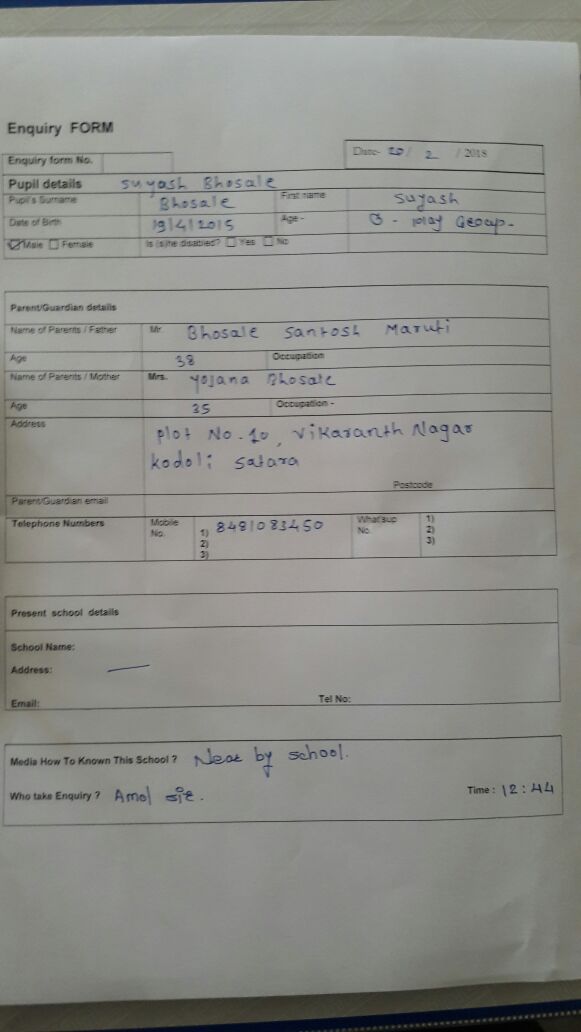 Enquiry FORM
Enquiry form No.
Date- 20 / 2 / 2018
Pupil details Suyash Bhosale
Pupil's Surname Bhosale First name Suyash
Date of Birth 19/4/2015 Age - 3 - play Group -
Male Female Is (s)he disabled? Yes No
Parent/Guardian details
Name of Parents / Father Mr. Bhosale Santosh Maruti
Age 38 Occupation
Name of Parents / Mother Mrs. Yojana Bhosale
Age 35 Occupation -
Address plot No. 10, Vikaranth Nagar
kodoli satara
Postcode
Parent/Guardian email
Telephone Numbers Mobile No. 1) 8481083450 What'sup No. 1)
2) 2)
3) 3)
Present school details
School Name:
Address: —
Email: Tel No:
Media How To Known This School ? Near by school.
Who take Enquiry ? Amol sir. Time : 12 : 44